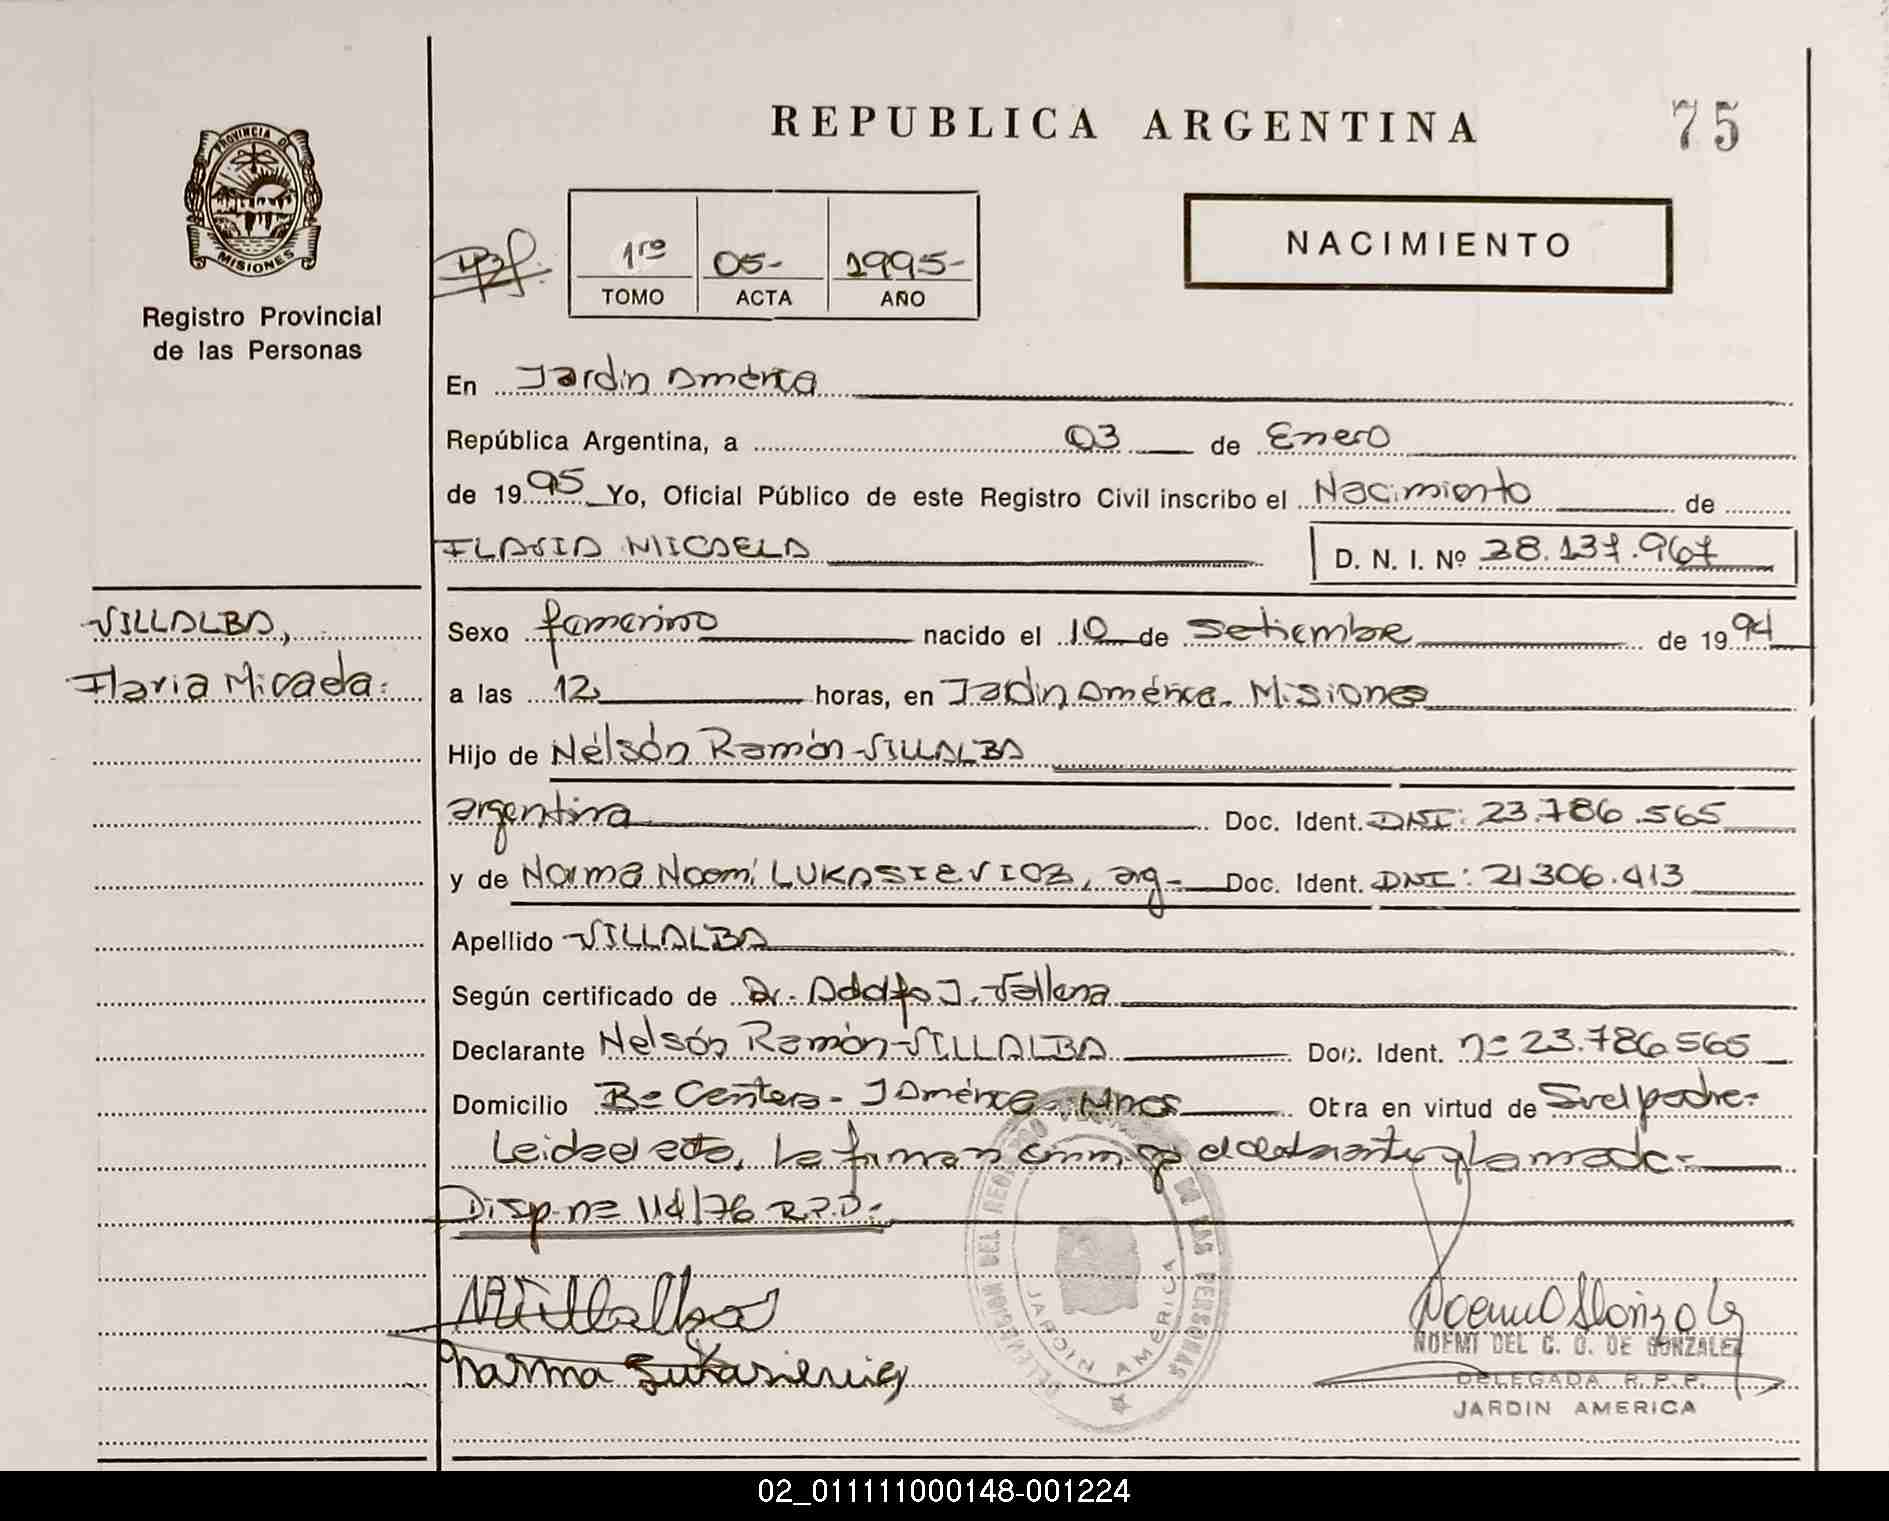 REPUBLICA ARGENTINA
75
PROVINCIA DE
MISIONES
Registro Provincial
de las Personas
1ro 05- 1995-
TOMO ACTA AÑO
NACIMIENTO
En Jardin América
República Argentina, a 03 de Enero
de 1995 Yo, Oficial Público de este Registro Civil inscribo el Nacimiento de
FLAVIA MICAELA
D. N. I. Nº 28.137.967
VILLALBA,
Flavia Micaela.
Sexo femenino nacido el 10 de Setiembre de 1994
a las 12 horas, en Jadin América. Misiones
Hijo de Nélsón Ramón VILLALBA
argentina Doc. Ident. DNI: 23.786.565
y de Norma Noemí LUKASIEVICZ, arg- Doc. Ident. DNI: 21306.413
Apellido VILLALBA
Según certificado de Dr. Adolfo J.
Declarante Nelsón Ramón VILLALBA Doc. Ident. nº 23.786.565
Domicilio Bº Centero - J América - Mnes Obra en virtud de Ser el padre-
Leida el acta, la firman conmigo el declarante y la madre-
Disp. nº 114/76 R.P.P.
DELEGACION DEL REGISTRO DE LAS PERSONAS
JARDIN AMERICA
Norma Lukasievicz
NOEMI DEL C. O. DE GONZALEZ
DELEGADA R.P.P.
JARDIN AMERICA
02_011111000148-001224